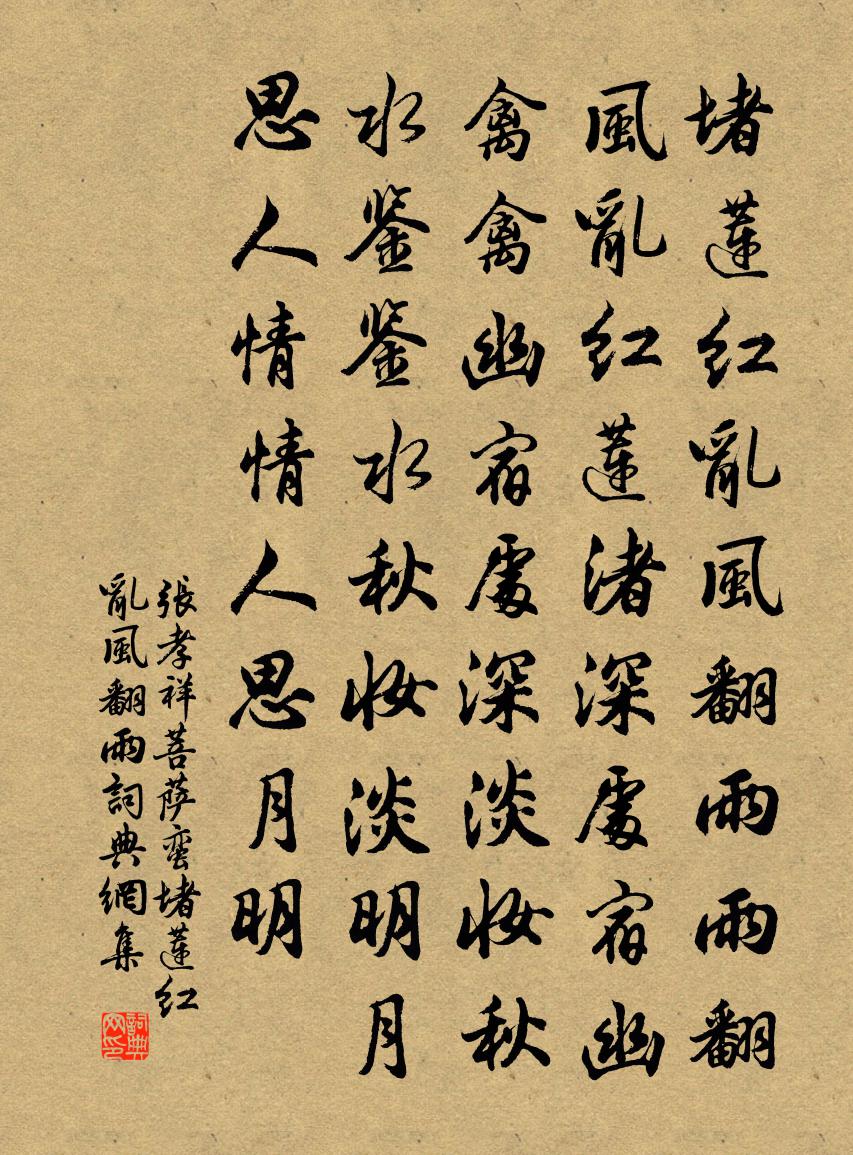 堵蓮紅亂風翻雨雨翻
風亂紅蓮渚深處宿幽
禽禽幽宿處深淡妝秋
水鉴鉴水秋妝淡明月
思人情情人思月明
張孝祥菩萨蛮堵蓮紅
亂風翻雨詞典網集
詞典网印